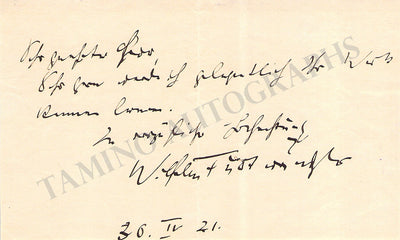 Sehr geehrter Herr,
Sehr gern werde ich gelegentlich Ihr Werk
kennen lernen.
In vorzüglicher Hochachtung
Wilhelm Furtwängler
26. IV 21.
TAMINO AUTOGRAPHS